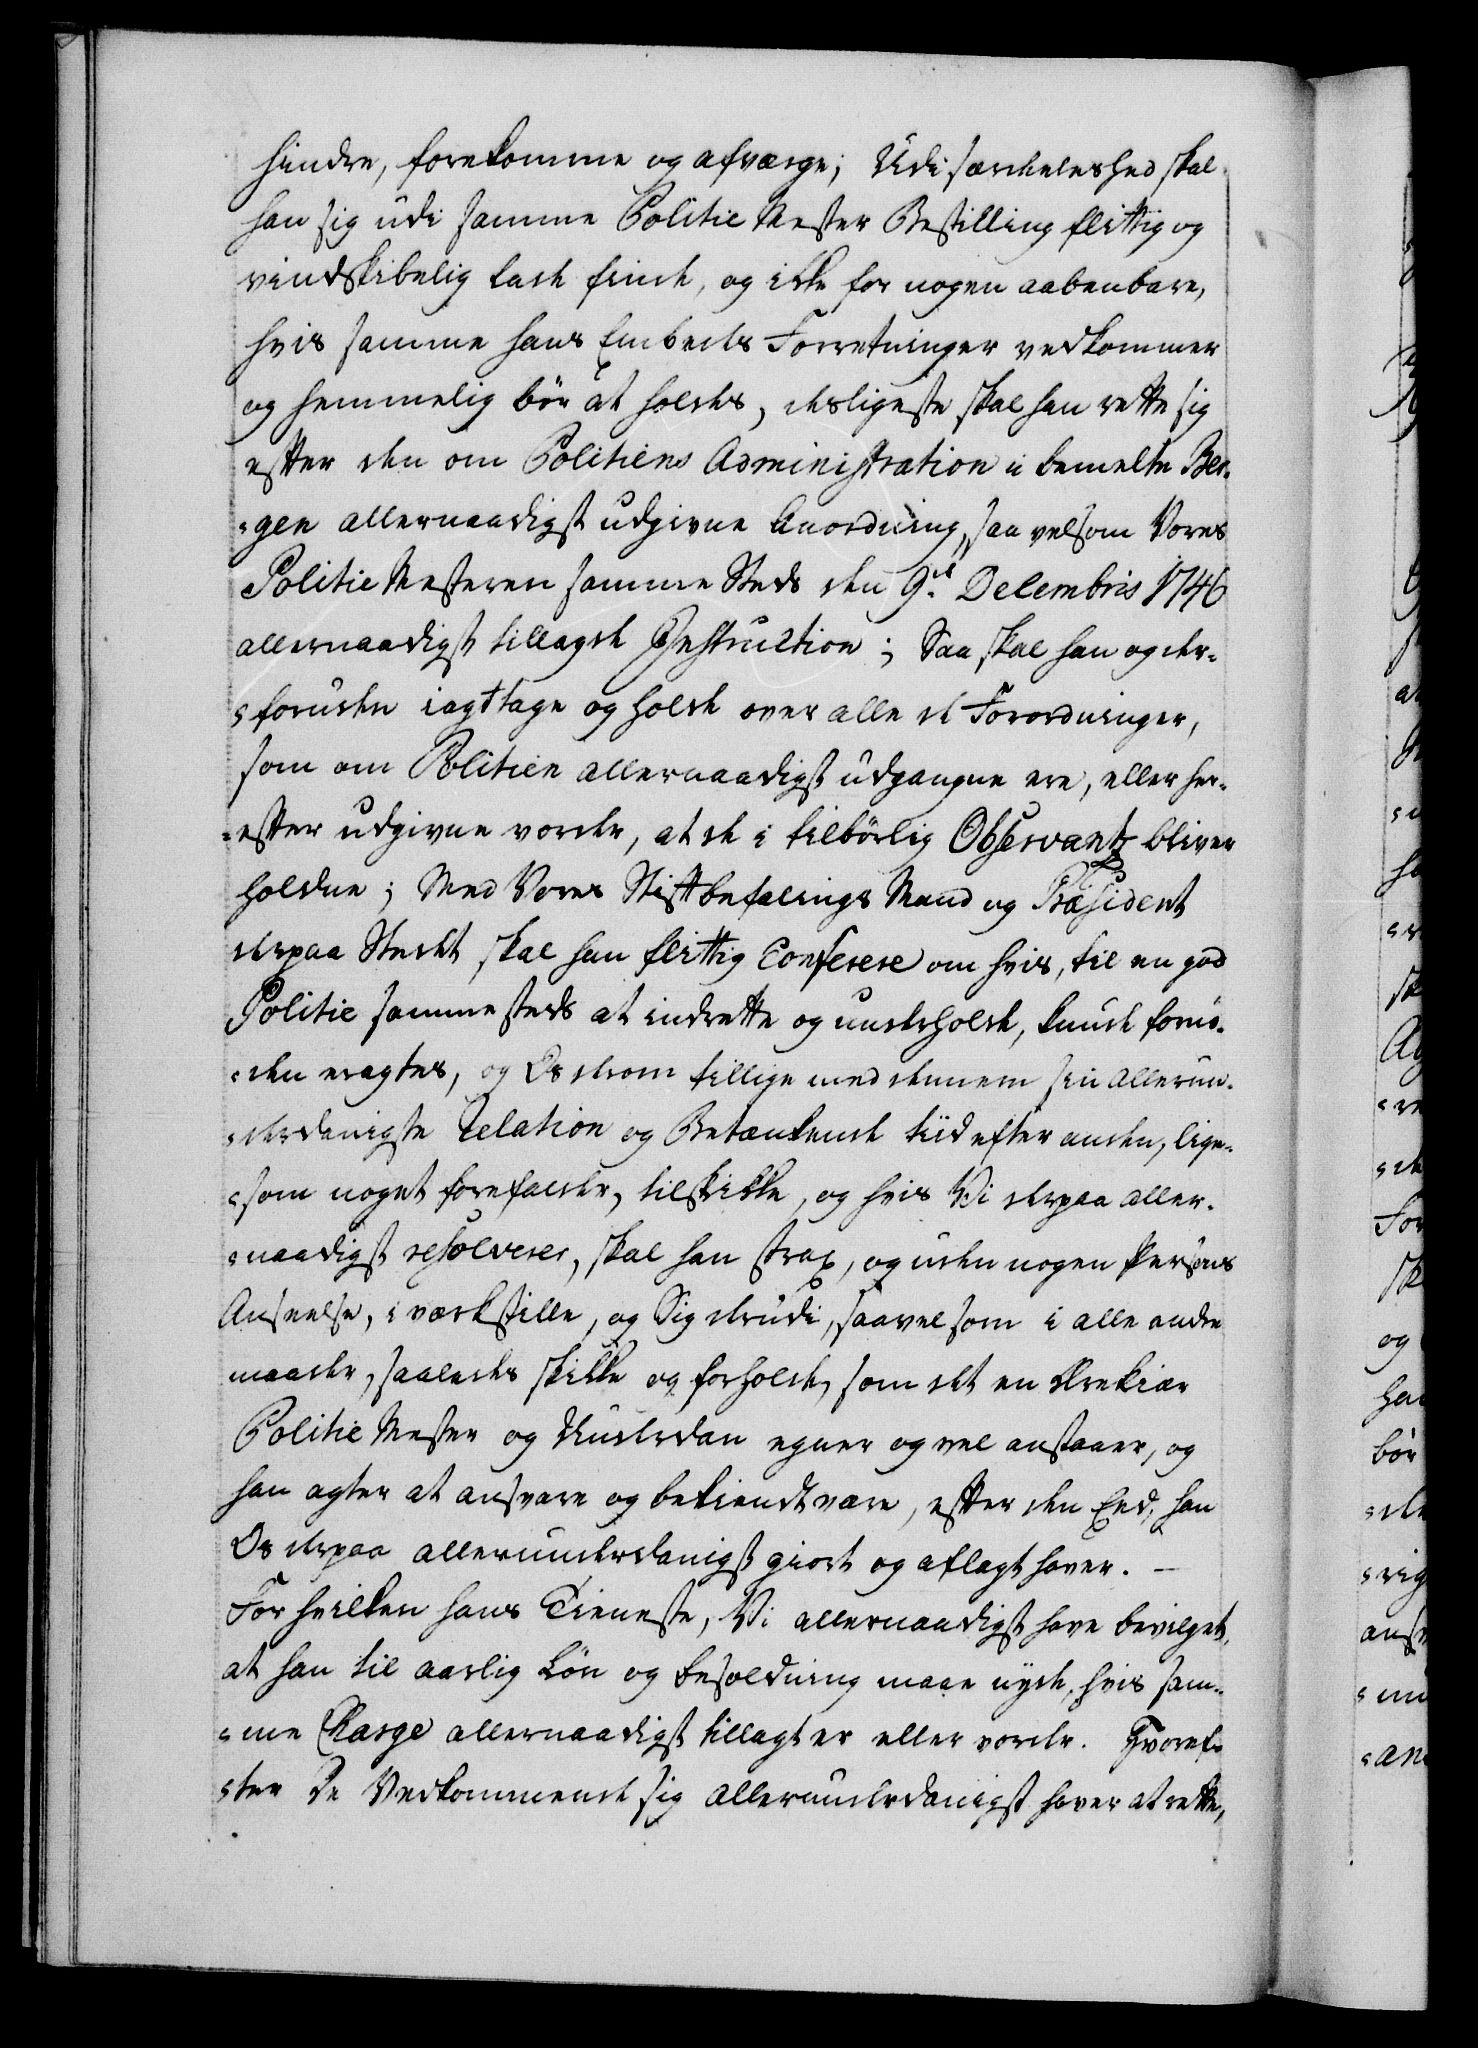 hindre, forekomme og afværge; Udi særdeleshed skal
han sig udi samme Politie Mester Bestilling flittig og
vindskibelig lade finde, og ikke for nogen aabenbare,
hvis samme hans Embeds Forretninger vedkommer
og hemmelig bör at holdes, desligeste skal han rette sig
efter den om Politiens Administration i bemelte Ber-
-gen allernaadigst udgivne Anordning, saa velsom Vores
Politie Mesteren samme Steds den 9de Decembris 1746
allernaadigst tillagde Instruction; Saa skal han og der-
-foruden iagttage og holde over alle de Forordninger,
som om Politien allernaadigst udgangne ere, eller her-
-efter udgivne vorder, at de i tilbörlig Observantz bliver
holdne; Med Vores Stiftbefalings Mand og Præsident
derpaa Stedet skal han flittig Conferere om hvis, til en god
Politie sammesteds at indrette og underholde, kunde fornö-
-den eragtes, og Os derom tillige med dennem sin allerun-
-derdanigste Relation og Betænkende tiid efter anden, lige-
-som noget forefalder, tilskikke, og hvis Vi derpaa aller-
-naadigst resolverer, skal han strax, og uden nogen Persons
Anseelse, i værkstille, og Sig derudi, saavelsom i alle andre
maader, saaledes skikke og forholde, som det en Ærekiær
Politie Mester og Underdan egner og vel anstaaer, og
han agter at ansvare og bekiendt være, efter den Eed, han
Os derpaa allerunderdanigst giort og aflagt haver. –
For hvilken hans Tieneste, Vi allernaadigst have bevilget,
at han til aarlig Lön og besoldning maae nyde, hvis sam-
-me Charge allernaadigst tillagt er eller vorder. Hvoref-
-ter De Vedkommende sig allerunderdanigst haver at rette,